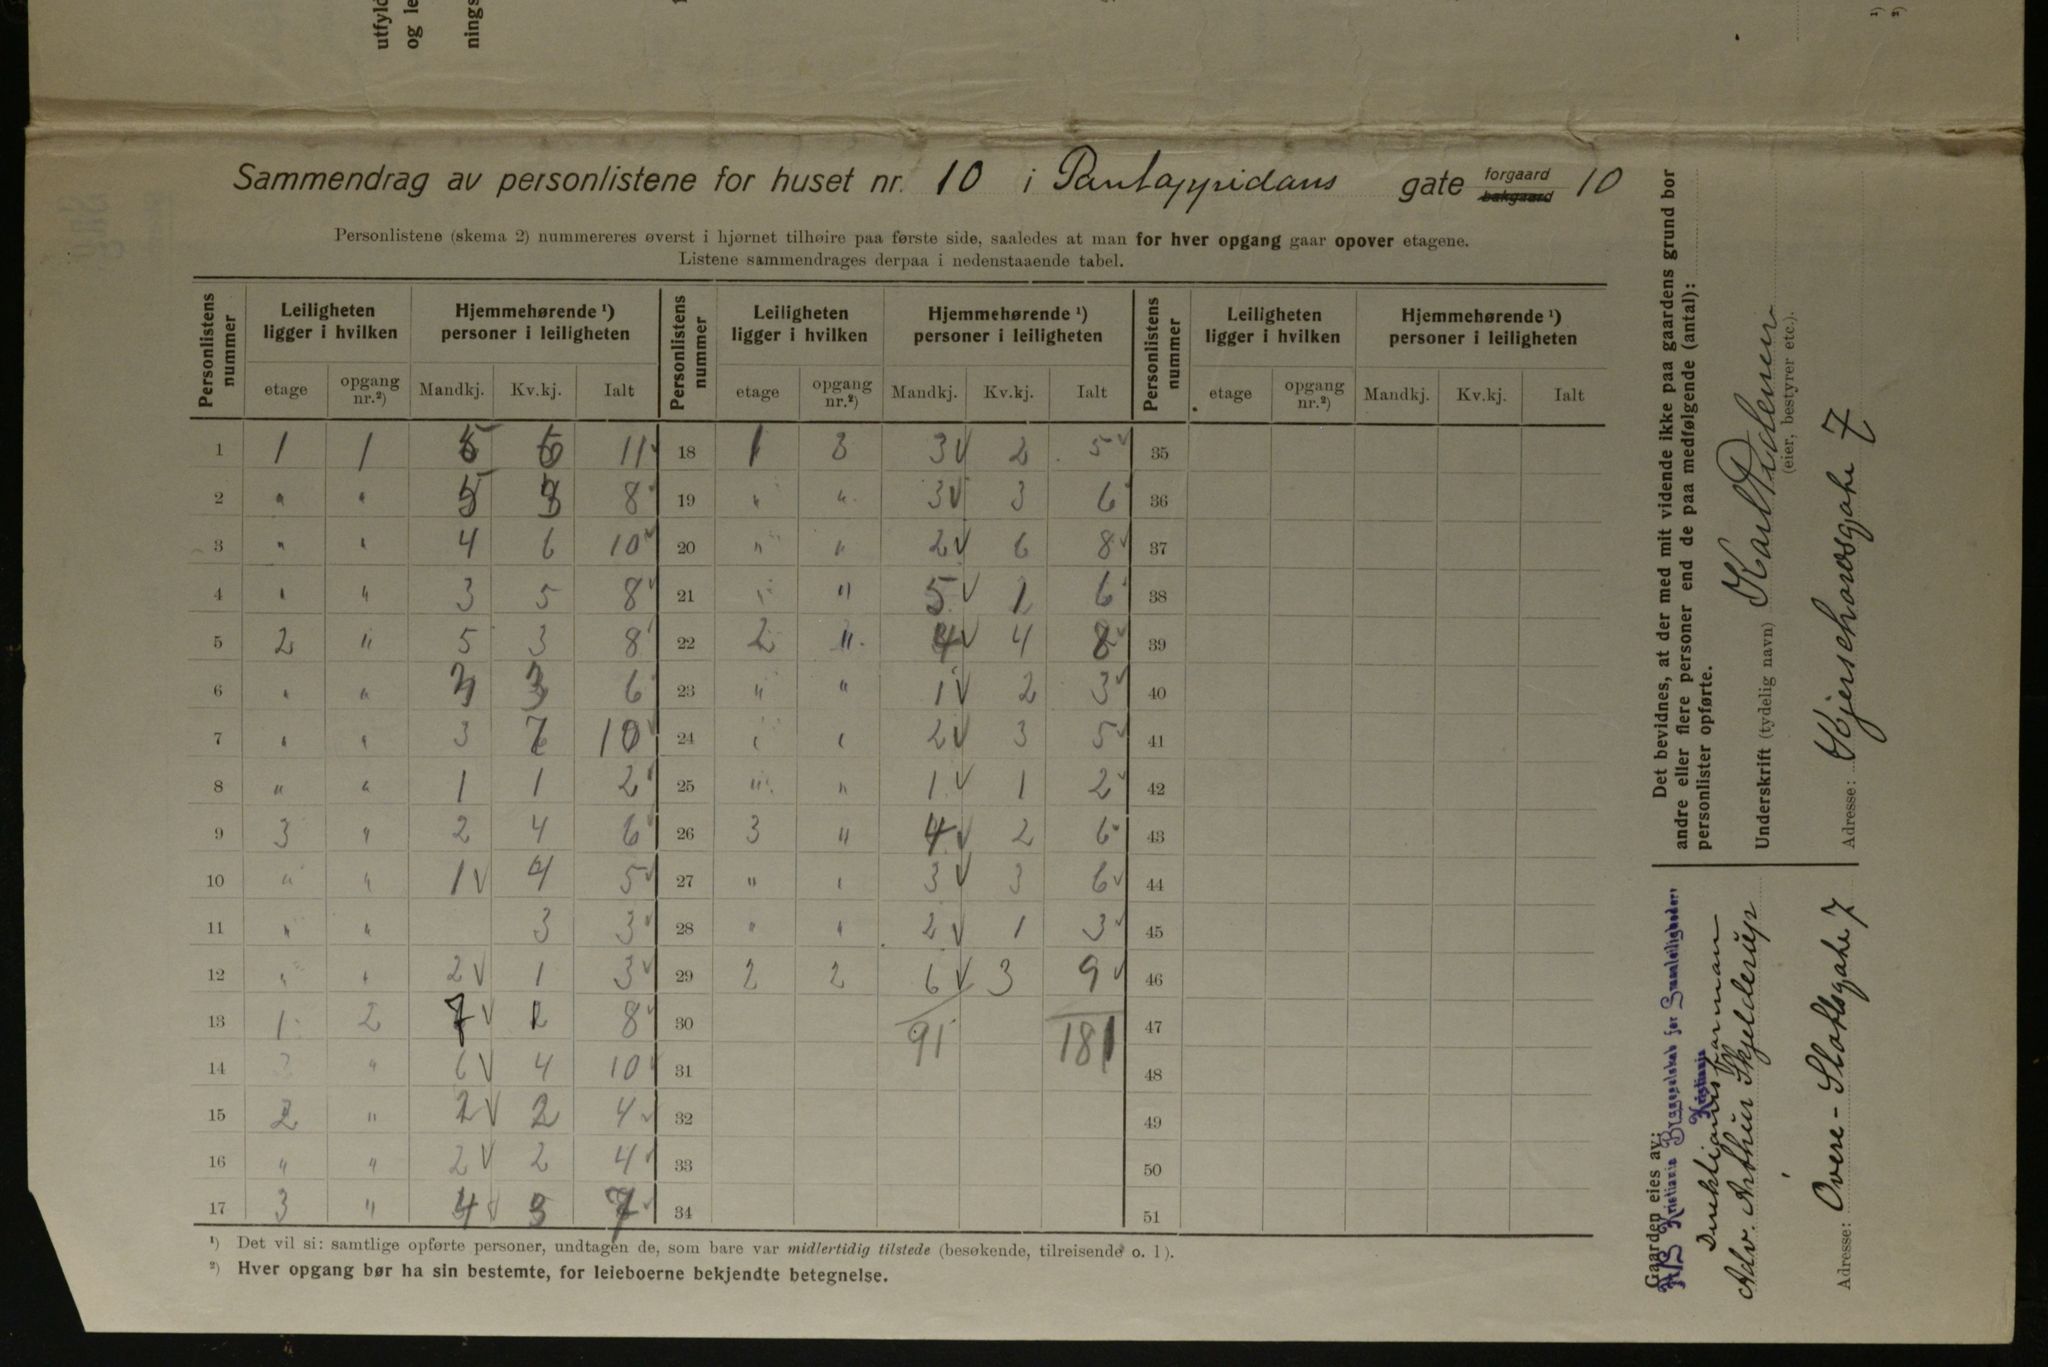 utfyld
og le
nings
¹)
²)
Sammendrag av personlistene for huset nr. 10 i gate forgaard bakgaard 10
Personlistene (skema 2) nummereres øverst i hjørnet tilhøire paa første side, saaledes at man for hver opgang gaar opover etagene.
Listene sammendrages derpaa i nedenstaaende tabel.
Personlistens nummer | Leiligheten ligger i hvilken | Hjemmehørende ¹) personer i leiligheten | Personlistens nummer | Leiligheten ligger i hvilken | Hjemmehørende ¹) personer i leiligheten | Personlistens nummer | Leiligheten ligger i hvilken | Hjemmehørende ¹) personer i leiligheten
etage | opgang nr.²) | Mandkj. | Kv.kj. | Ialt | etage | opgang nr.²) | Mandkj. | Kv.kj. | Ialt | etage | opgang nr.²) | Mandkj. | Kv.kj. | Ialt
1 | 1 | 1 | 5 | 6 | 11 | 18 | 1 | 3 | 3 √ | 2 | 5 | 35
2 | " | " | 5 | 3 | 8 | 19 | " | " | 3 √ | 3 | 6 | 36
3 | " | " | 4 | 6 | 10 | 20 | " | " | 2 √ | 6 | 8 | 37
4 | " | " | 3 | 5 | 8 | 21 | " | " | 5 √ | 1 | 6 | 38
5 | 2 | " | 5 | 3 | 8 | 22 | 2 | " | 4 √ | 4 | 8 | 39
6 | " | " | 3 | 3 | 6 | 23 | " | " | 1 √ | 2 | 3 | 40
7 | " | " | 3 | 7 | 10 | 24 | " | " | 2 √ | 3 | 5 | 41
8 | " | " | 1 | 1 | 2 | 25 | " | " | 1 √ | 1 | 2 | 42
9 | 3 | " | 2 | 4 | 6 | 26 | 3 | " | 4 √ | 2 | 6 | 43
10 | " | " | 1 √ | 4 | 5 | 27 | " | " | 3 √ | 3 | 6 | 44
11 | " | " | | 3 | 3 | 28 | " | " | 2 √ | 1 | 3 | 45
12 | " | " | 2 √ | 1 | 3 | 29 | 2 | 2 | 6 √ | 3 | 9 | 46
13 | 1 | 2 | 7 √ | 1 | 8 | 30 | | | 91 | | 181 | 47
14 | | " | 6 √ | 4 | 10 | 31 | | | | | | 48
15 | 2 | " | 2 √ | 2 | 4 | 32 | | | | | | 49
16 | " | " | 2 √ | 2 | 4 | 33 | | | | | | 50
17 | 3 | " | 4 √ | 3 | 7 | 34 | | | | | | 51
¹) Det vil si: samtlige opførte personer, undtagen de, som bare var midlertidig tilstede (besøkende, tilreisende o. l).
²) Hver opgang bør ha sin bestemte, for leieboerne bekjendte betegnelse.
Gaarden eies av:
A/S Kristiania Byggeselskab for Smaaleiligheder,
Kristiania
Direktionsformann
Adv. Arthur Skjelderup
Adresse: Øvre-Slottsgate 7
Det bevidnes, at der med mit vidende ikke paa gaardens grund bor
andre eller flere personer end de paa medfølgende (antal):
personlister opførte.
Underskrift (tydelig navn) Karl
(eier, bestyrer etc.).
Adresse: 7